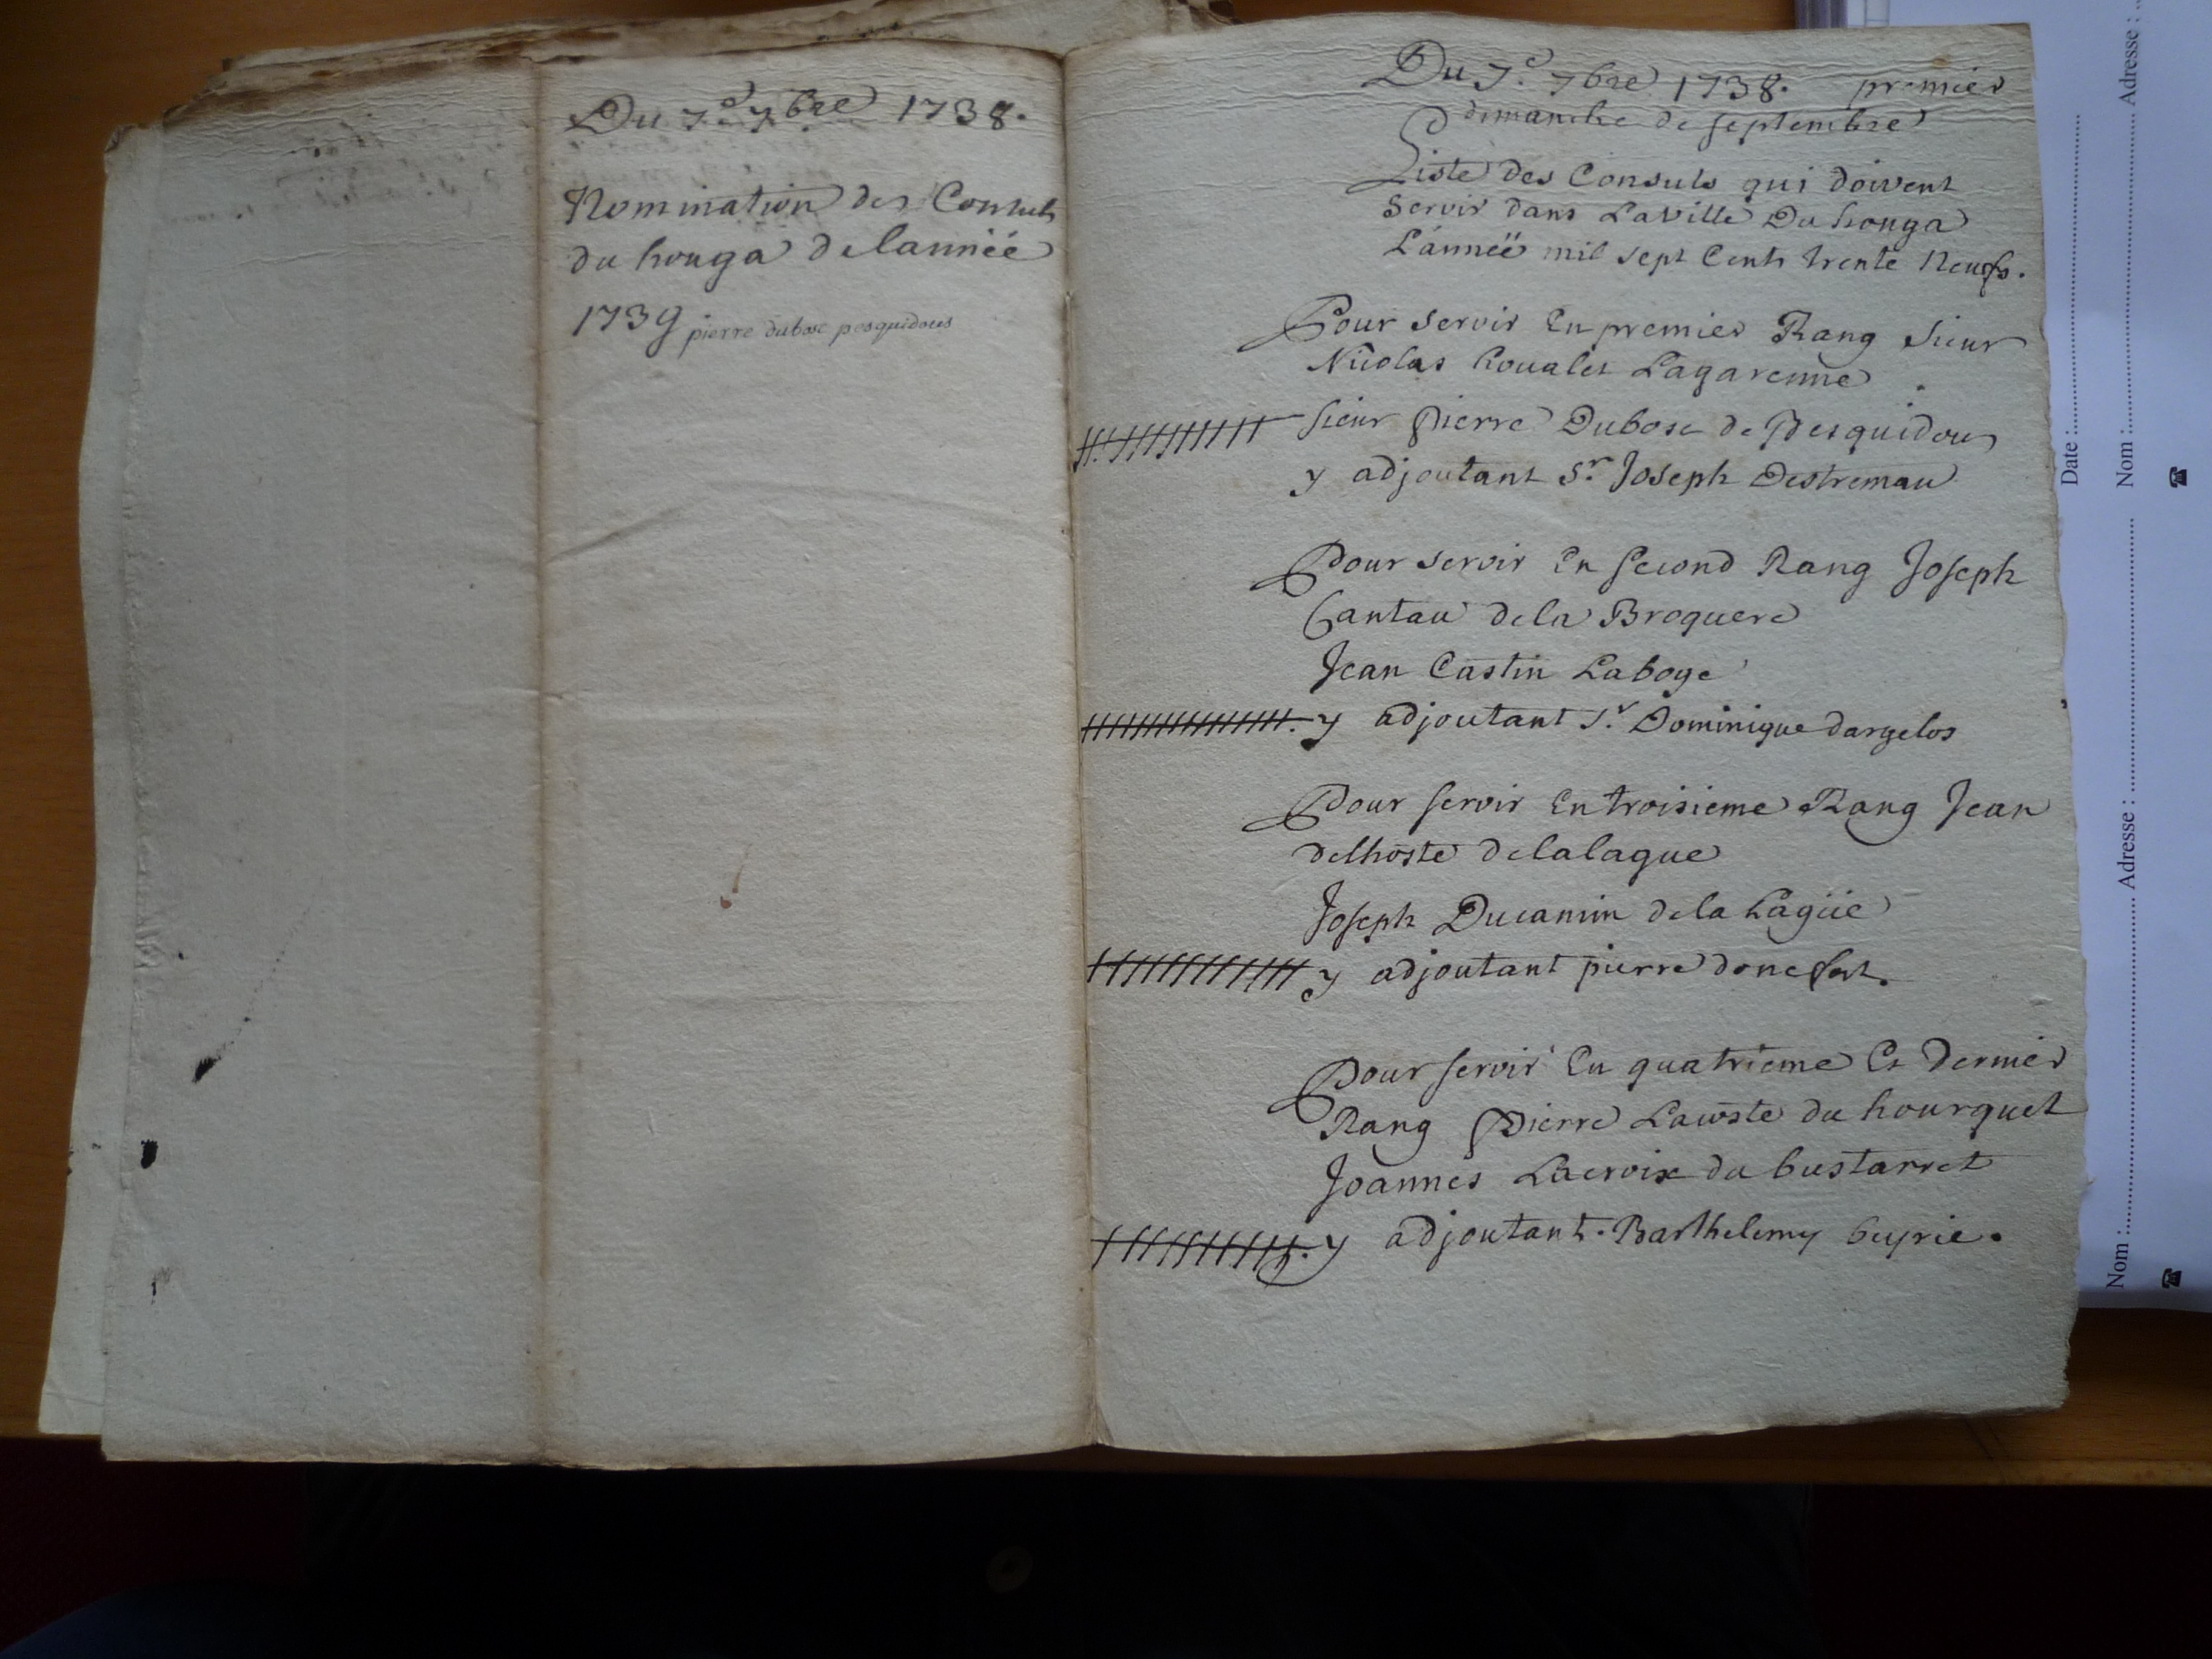 Du 7e 7bre 1738.
Nomination des Consuls
du houga de lannéé
1739 pierre dubosc pesquidous
Du 7e 7bre 1738. premier
dimanche de septembre
Liste des Consuls qui doivent
servir dans La ville Du houga
L'année mil sept Cents trente Neufs.
Pour servir En premier Rang sieur
Nicolas Lagarenne
sieur pierre Dubosc de Pesquidous
y adjoutant Sr. Joseph Destremau
Pour servir En second Rang Joseph
Cantau de la Broquere
Jean Castin Laboge
y adjoutant Sr. Dominique dargelos
Pour servir En troisieme Rang Jean
delhoste de lalague
Joseph Ducamin de la Lagüe
y adjoutant pierre donefort.
Pour servir En quatrieme Et Dernier
Rang Pierre Lacoste du hourquet
Joannes Lacroix du bustarret
y adjoutant. Barthelemy beyrie.
Date :
Nom :
Adresse :
Nom :
Adresse :